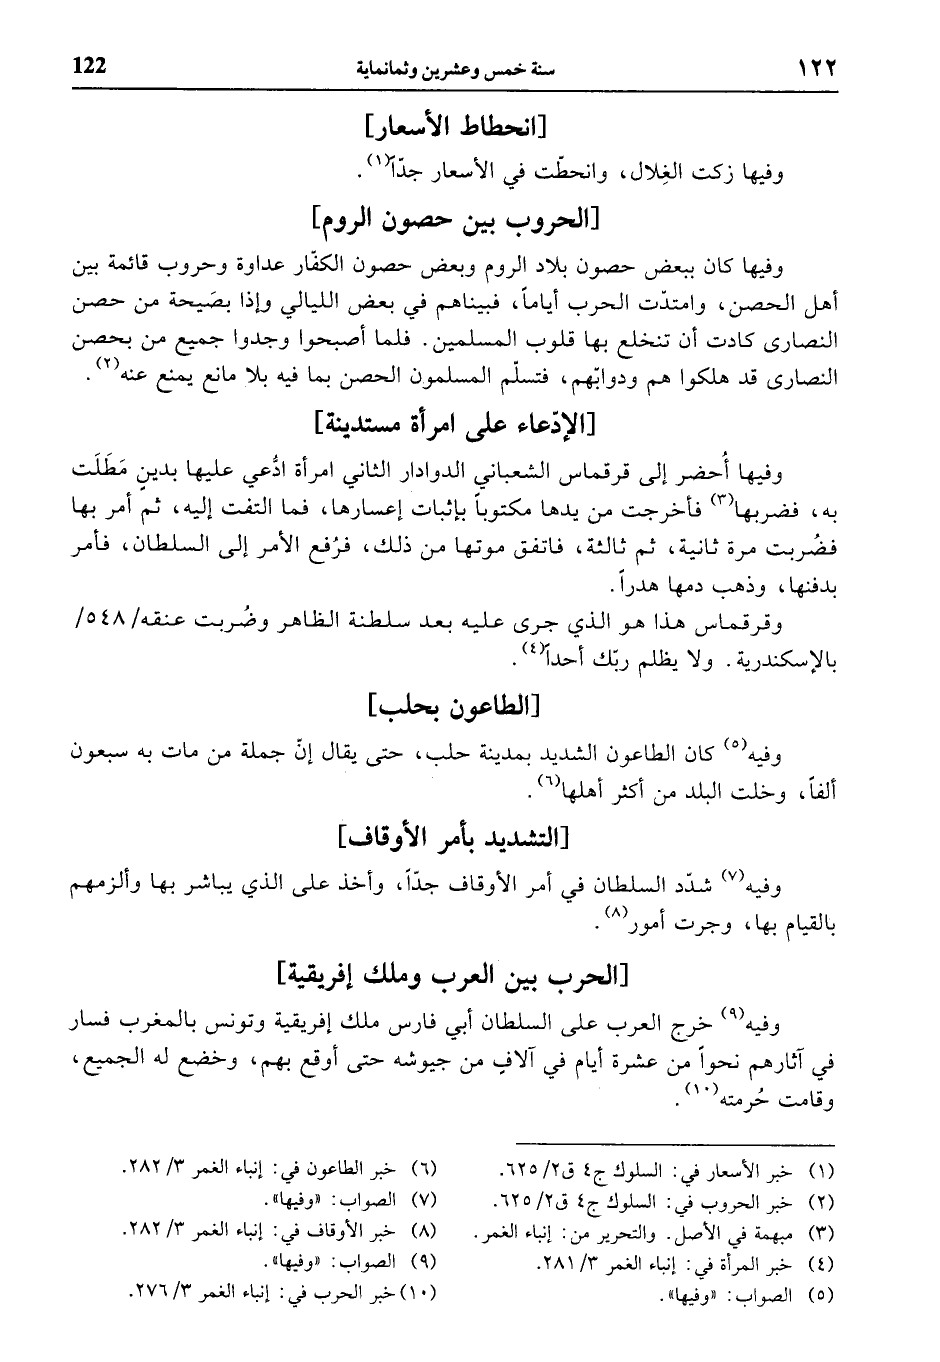 ١٢٢ سنة خمس وعشرين وثمانماية 122
[انحطاط الأسعار]
وفيها زكت الغِلال، وانحطّت في الأسعار جدّاً(١).
[الحروب بين حصون الروم]
وفيها كان ببعض حصون بلاد الروم وبعض حصون الكفّار عداوة وحروب قائمة بين
أهل الحصن، وامتدّت الحرب أياماً، فبيناهم في بعض الليالي وإذا بصَيحة من حصن
النصارى كادت أن تنخلع بها قلوب المسلمين. فلما أصبحوا وجدوا جميع من بحصن
النصارى قد هلكوا هم ودوابّهم، فتسلّم المسلمون الحصن بما فيه بلا مانع يمنع عنه(٢).
[الإدّعاء على امرأة مستدينة]
وفيها أُحضر إلى قرقماس الشعباني الدوادار الثاني امرأة ادُّعي عليها بدينٍ مَطَلَت
به، فضربها(٣) فأخرجت من يدها مكتوباً بإثبات إعسارها، فما التفت إليه، ثم أمر بها
فضُربت مرة ثانية، ثم ثالثة، فاتفق موتها من ذلك، فرُفع الأمر إلى السلطان، فأمر
بدفنها، وذهب دمها هدراً.
وقرقماس هذا هو الذي جرى عليه بعد سلطنة الظاهر وضُربت عنقه/ ٥٤٨/
بالإسكندرية. ولا يظلم ربّك أحداً(٤).
[الطاعون بحلب]
وفيه(٥) كان الطاعون الشديد بمدينة حلب، حتى يقال إنّ جملة من مات به سبعون
ألفاً، وخلت البلد من أكثر أهلها(٦).
[التشديد بأمر الأوقاف]
وفيه(٧) شدّد السلطان في أمر الأوقاف جدّاً، وأخذ على الذي يباشر بها وألزمهم
بالقيام بها، وجرت أمور(٨).
[الحرب بين العرب وملك إفريقية]
وفيه(٩) خرج العرب على السلطان أبي فارس ملك إفريقية وتونس بالمغرب فسار
في آثارهم نحواً من عشرة أيام في آلافٍ من جيوشه حتى أوقع بهم، وخضع له الجميع،
وقامت حُرمته(١٠).
(١) خبر الأسعار في: السلوك ج٤ ق٢/ ٦٢٥.
(٢) خبر الحروب في: السلوك ج٤ ق٢/ ٦٢٥.
(٣) مبهمة في الأصل. والتحرير من: إنباء الغمر.
(٤) خبر المرأة في: إنباء الغمر ٣/ ٢٨١.
(٥) الصواب: «وفيها».
(٦) خبر الطاعون في: إنباء الغمر ٣/ ٢٨٢.
(٧) الصواب: «وفيها».
(٨) خبر الأوقاف في: إنباء الغمر ٣/ ٢٨٢.
(٩) الصواب: «وفيها».
(١٠) خبر الحرب في: إنباء الغمر ٣/ ٢٧٦.